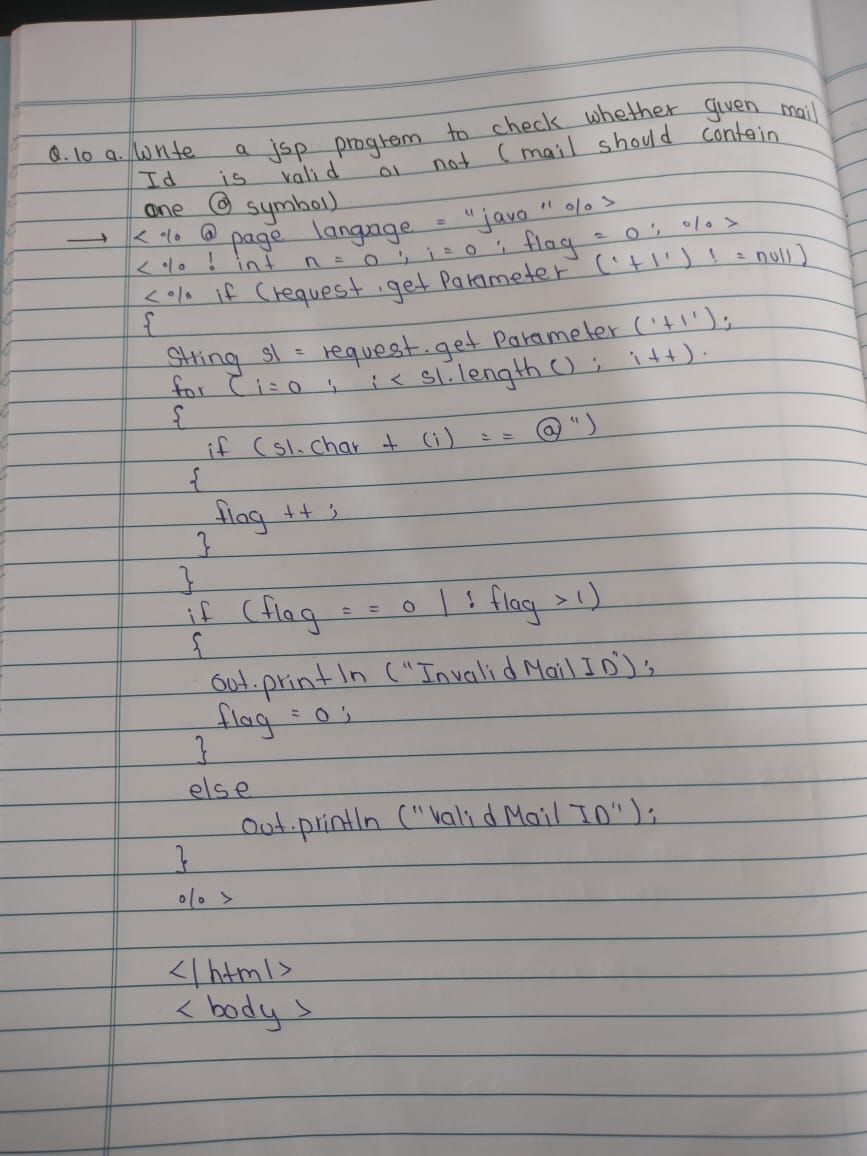 Q.10 a. Write a jsp program to check whether given mail
Id is valid or not (mail should contain
one @ symbol)
→ <% @ page langnage = "java" %>
<% ! int n = 0 ; i = 0 ; flag = 0 ; %>
<% if (request.get Parameter ('+1') ! = null)
{
String s1 = request.get Parameter ('+1');
for (i=0 ; i< s1.length() ; i++).
{
if (s1.char + (i) == @")
{
flag ++ ;
}
}
if (flag = = 0 | ! flag >1)
{
out.println ("Invalid Mail ID");
flag = 0 ;
}
else
out.println ("Valid Mail ID");
}
%>
</html>
< body >